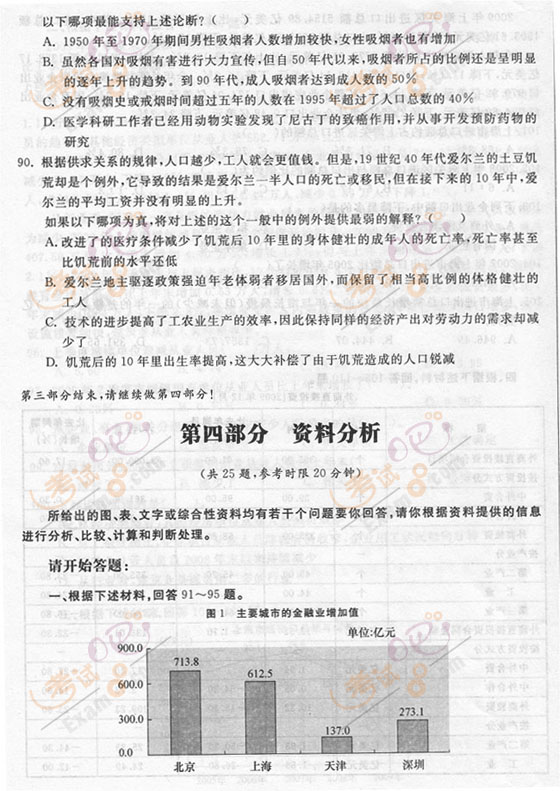 以下哪项最能支持上述论断?(　　)
A. 1950年至1970年期间男性吸烟者人数增加较快,女性吸烟者也有增加
B. 虽然各国对吸烟有害进行大力宣传,但自50年代以来,吸烟者所占的比例还是呈明显
的逐年上升的趋势。到90年代,成人吸烟者达到成人数的50%
C. 没有吸烟史或戒烟时间超过五年的人数在1995年超过了人口总数的40%
D. 医学科研工作者已经用动物实验发现了尼古丁的致癌作用,并从事开发预防药物的
研究
90. 根据供求关系的规律,人口越少,工人就会更值钱。但是,19世纪40年代爱尔兰的土豆饥
荒却是个例外,它导致的结果是爱尔兰一半人口的死亡或移民,但在接下来的10年中,爱
尔兰的平均工资并没有明显的上升。
如果以下哪项为真,将对上述的这个一般中的例外提供最弱的解释?(　　)
A. 改进了的医疗条件减少了饥荒后10年里的身体健壮的成年人的死亡率,死亡率甚至
比饥荒前的水平还低
B. 爱尔兰地主驱逐政策强迫年老体弱者移居国外,而保留了相当高比例的体格健壮的
工人
C. 技术的进步提高了工农业生产的效率,因此保持同样的经济产出对劳动力的需求却减
少了
D. 饥荒后的10年里出生率提高,这大大补偿了由于饥荒造成的人口锐减
第三部分结束,请继续做第四部分!
第四部分　资料分析
(共25题,参考时限20分钟)
所给出的图、表、文字或综合性资料均有若干个问题要你回答,请你根据资料提供的信息
进行分析、比较、计算和判断处理。
请开始答题:
一、根据下述材料,回答91~95题。
图1　主要城市的金融业增加值
单位:亿元
900.0
600.0
300.0
0.0
713.8
612.5
137.0
273.1
北京　上海　天津　深圳